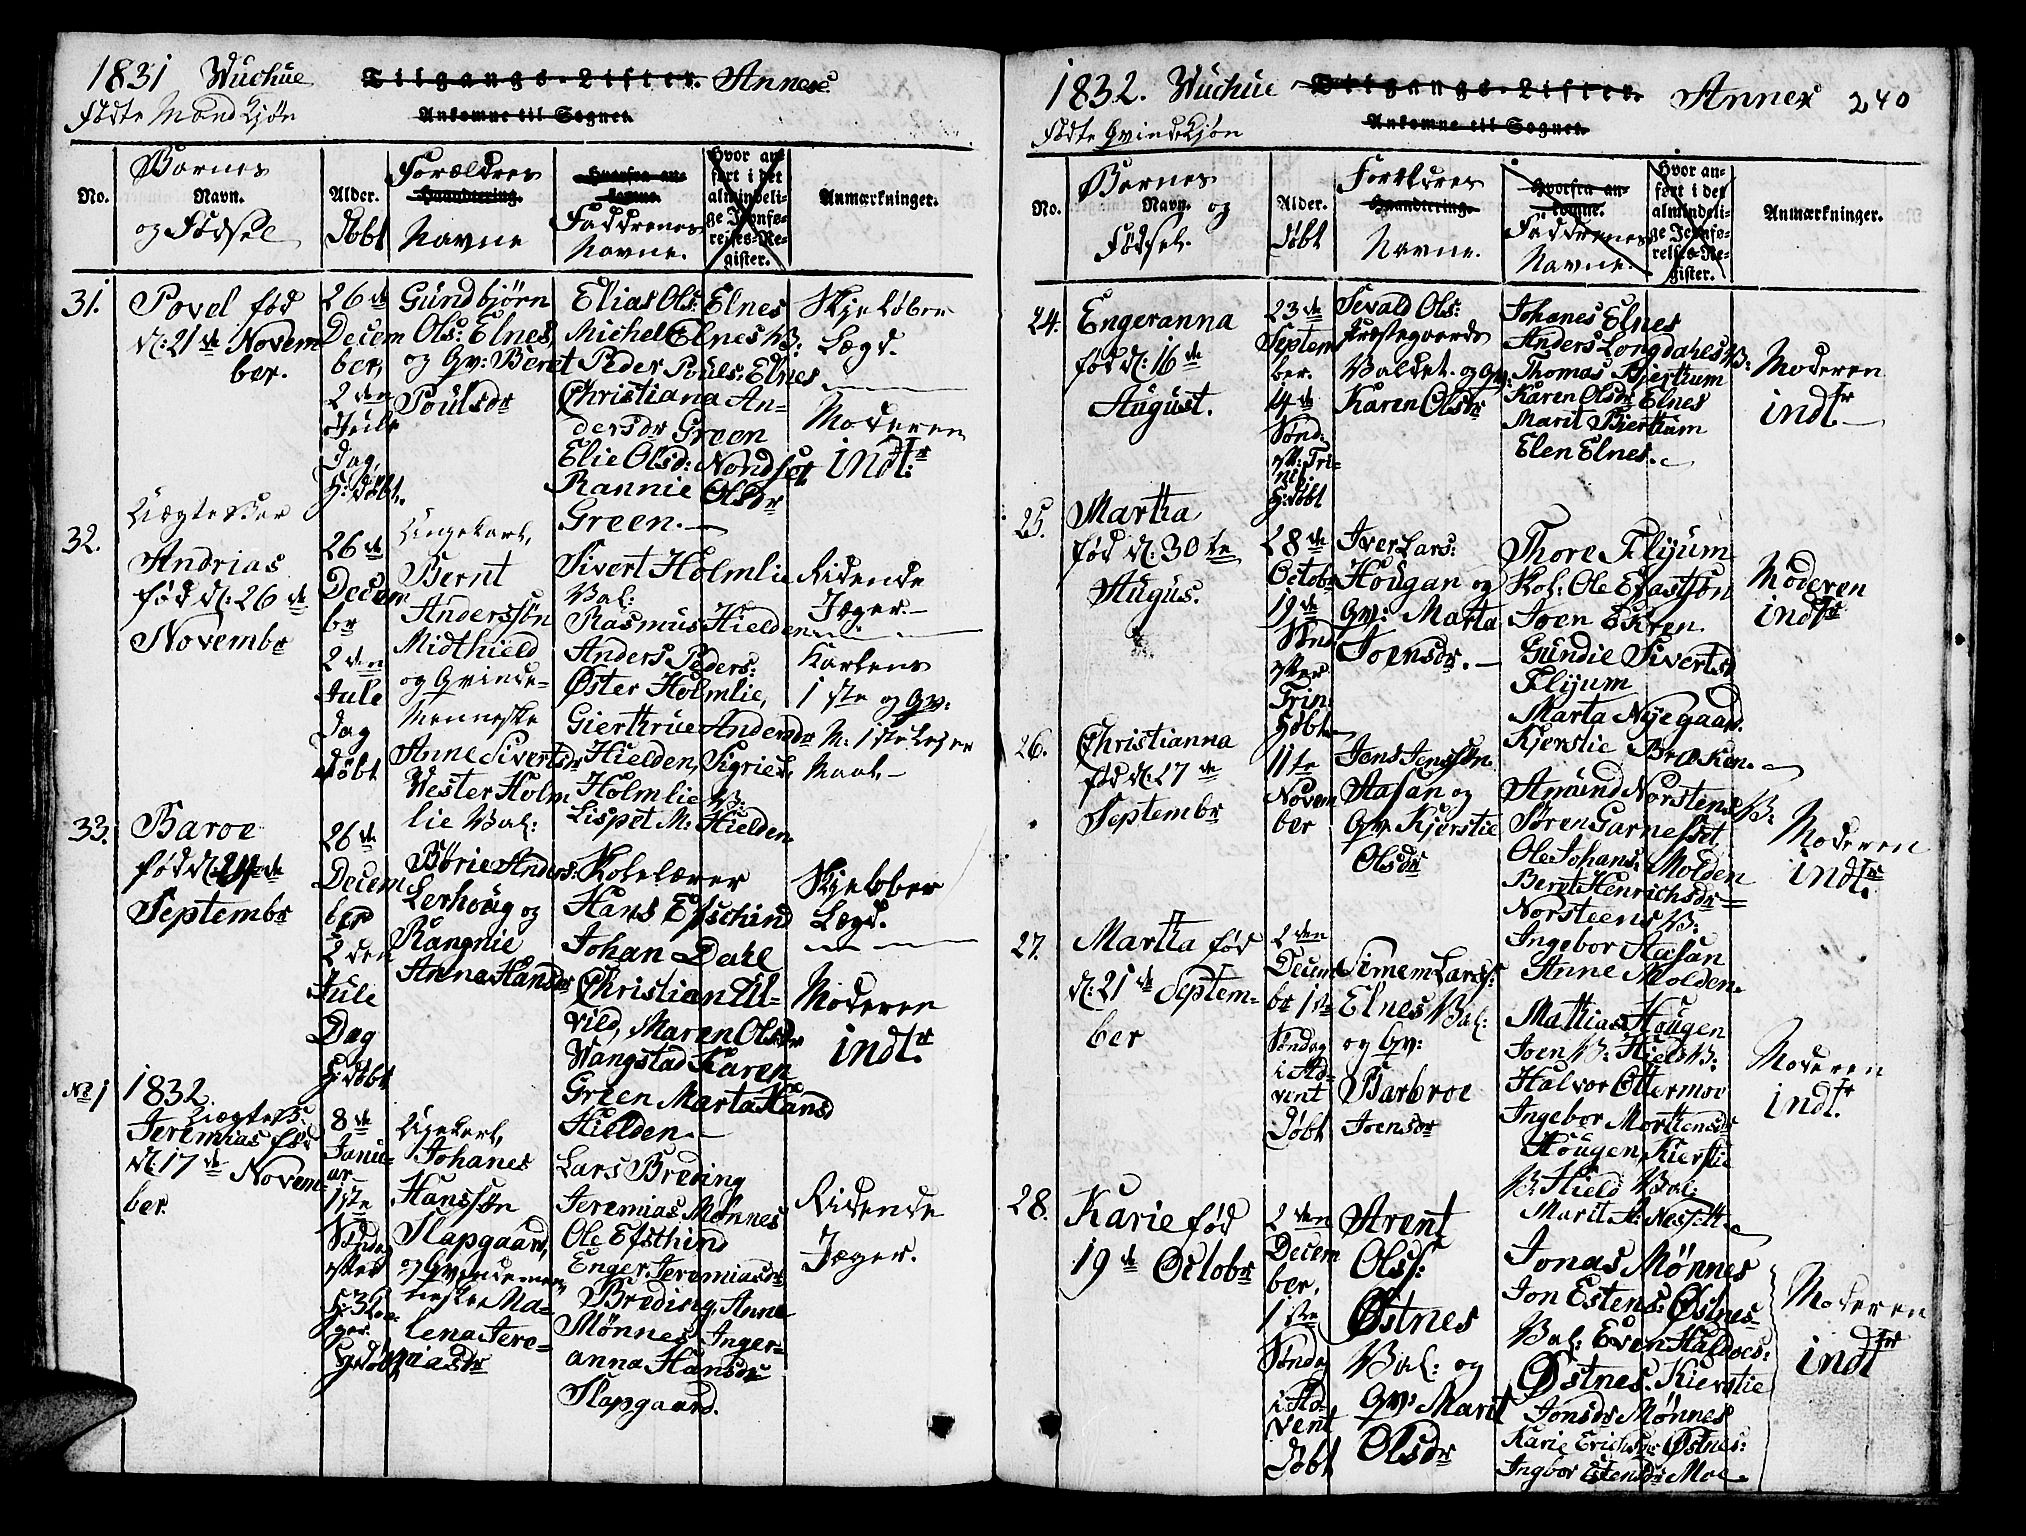 1831 Wuchue Tilgangs-Lister. Annex
Fødte Mandkjøn
Ankomne til Sognet.
No.
Barnes
Navn.
og Fødsel
Alder.
Døbt
Forældres
Haandtering.
Navne
Hvorfra ankomne.
Faddrenes
Navne.
Hvor anført i det almindelige Jevnførelses-Register.
Anmærkninger.
31.
Povel fød
d: 21de Novem
ber.
26de
Decem
ber,
2den
Jule
Dag,
H: døbt.
Gundbjørn
Ols: Elnes,
og Gv: Beret
Poulsdr
Elias Ols: Elnes
Michel Elnes B:
Peder Pouls: Elnes
Christiana An-
dersdr Green
Elie Olsd: Nordset
Rannie Olsdr
Green.
Skjeløber
Lægd.
Moderen
indtr
32.
Uægte Bar
Andrias
fød d: 26de
Novembr
26de
Decem
br
2den
Jule
Dag
døbt
Ungekarl,
Bernt
Anderssøn
Midthield
og Qvinde-
Menneske
Anne Sivertsdr
Vester Holm
lie Val:
Sivert Holmlie
Val:
Rasmus Hielden
Anders Peders:
Øster Holmlie,
Gierthrue Andersdr
Hielden, Sigried
Holmlie V:
Lispet M: Hielden
Ridende
Jæger.
Karlens
1ste og Qv:
M: 1ste Leier
Maal.
33.
Baroe
fød d: 24de
Septembr
26de
Decem
ber
2den
Jule
Dag
H: døbt
Børie Anders:
Lerhoug og
Rangnie
Anna Hansdr
Kolelærer
Hans Efschind
Johan Dahl
Christian Ul-
vild, Maren Olsdr
Wangstad Karen
Green Marta Hansd
Hielden.
Skjeløber
Lægd.
Moderen
indtr
No 1
1832.
Uægte B:
Jeremias fød
d: 17de Novem-
ber.
8de
Janu-
ar
1ste
Sønda
efter
H: 3 Kon-
ger.
H: døbt
Ungekarl,
Johanes
Hanssøn
Slapgaard,
og Qvindemen
neske Ma-
lena Jere-
miasdr
Lars Breding
Jeremias Mønnes
Ole Efsthind
Enger Jeremiasdr
Breding, Anne
Mønnes Inger-
anna Hansdr
Slapgaard.
Ridende
Jæger.
1832. Wuchue Tilgangs-Lister. Annex 240
Fødte Qvindekjøn
Ankomne til Sognet.
No.
Barnes
Navn. og
Fødsel.
Alder.
Døbt
Forældres
Haandtering.
Navne.
Hvorfra ankomne.
Faddrenes
Navne.
Hvor anført i det almindelige Jevnførelses-Register.
Anmærkninger.
24.
Engeranna
fød d: 16de
August.
23de
Septem
ber.
14de
Sønd:
eft: Tri-
nit.
H: døbt
Sivald Ols:
Præstegaards
Valdet. og Gv:
Karen Olsdr
Johanes Elnes
Anders Longdahls V:
Thomas Bjerkum
Karen Olsdr Elnes
Marit Bierkum
Elen Elnes.
Moderen
indtr
25.
Martha
fød d: 30te
Augus.
28de
Octobr
19de
Sønd
efter
Trin:
H: døbt
Iver Lars:
Hougan og
Gv: Marta
Joensdr.
Thore Flyum
Kol: Ole Efastsøn
Joen Ekren
Gundie Sivertsd
Flyum
Marta Nyegaar.
Kjerstie Bræken.
Moderen
indtr
26.
Christianna
fød d: 27de
Septembr
11te
Novem
ber
Jens Jenssøn
Aasan og
Gv: Kjerstie
Olsdr
Amund Norstens V:
Søren Garnesset
Ole Johans: Molden
Beret Henrichsdr
Norsteens V:
Ingebor Aasan
Anne Molden.
Moderen
indtr
27.
Martha fød
d: 21de Septem-
ber
2den
Decem
br 1ste
Søndag
i Ad-
vent
Døbt
Simem Lars:
Elnes Val:
og Gv:
Barbroe
Joensdr
Mathias Hougen
Joen V: Hiels V:
Halvor Ottermoe
Ingebor Morttensdr
Hougen, Kierstie
V: Hield Val:
Marit
Moderen
indtr
28.
Karie fød
19de Octobr
2den
Decem
ber,
1ste
Sønda
i Ad-
vent
Døbt
Arent
Ols:
Østnes
Val: og
Gv: Marit
Olsdr
Jonas Mønnes
Jon Estens: Østnes
Val: Even Haldoes:
Østnes. Kierstie
Jonsdr Mønnes
Karie Erichsdr Østnes:
Ingbor Estensdr Moe
Moderen
indtr